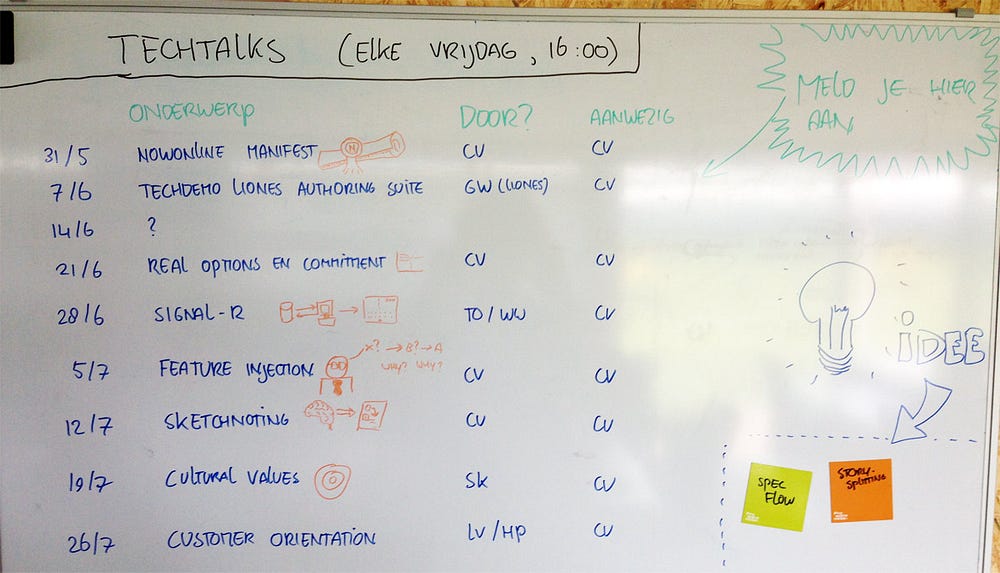 TECHTALKS (ELKE VRIJDAG, 16:00)
MELD JE HIER
AAN
ONDERWERP DOOR? AANWEZIG
31/5 NOWONLINE MANIFEST N CV CV
7/6 TECHDEMO LIONES AUTHORING SUITE GW (LIONES) CV
14/6 ?
21/6 REAL OPTIONS EN COMMITMENT CV CV
28/6 SIGNAL-R TO/WW CV
X? → B? → A
WHY? WHY?
5/7 FEATURE INJECTION CV CV
12/7 SKETCHNOTING CV CV
19/7 CULTURAL VALUES SK CV
26/7 CUSTOMER ORIENTATION LV/HP CV
iDEE
SPEC
FLOW
STORY-
SPLITTING